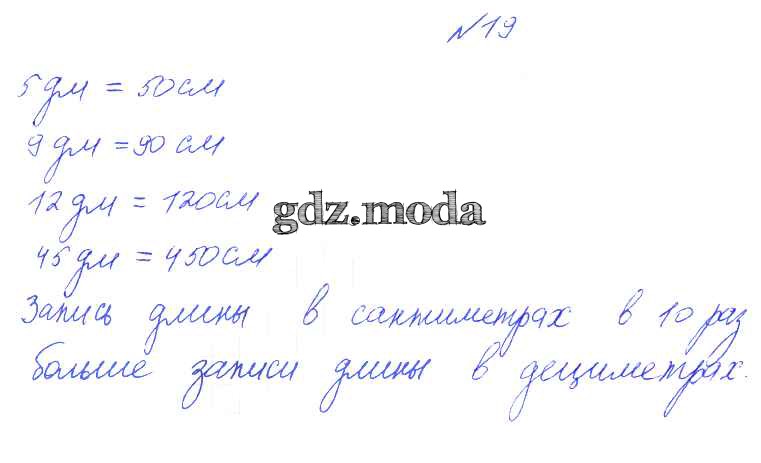 №19
5 дм = 50 см
9 дм = 90 см
12 дм = 120 см
gdz.moda
45 дм = 450 см
Запись длины в сантиметрах в 10 раз
больше записи длины в дециметрах.